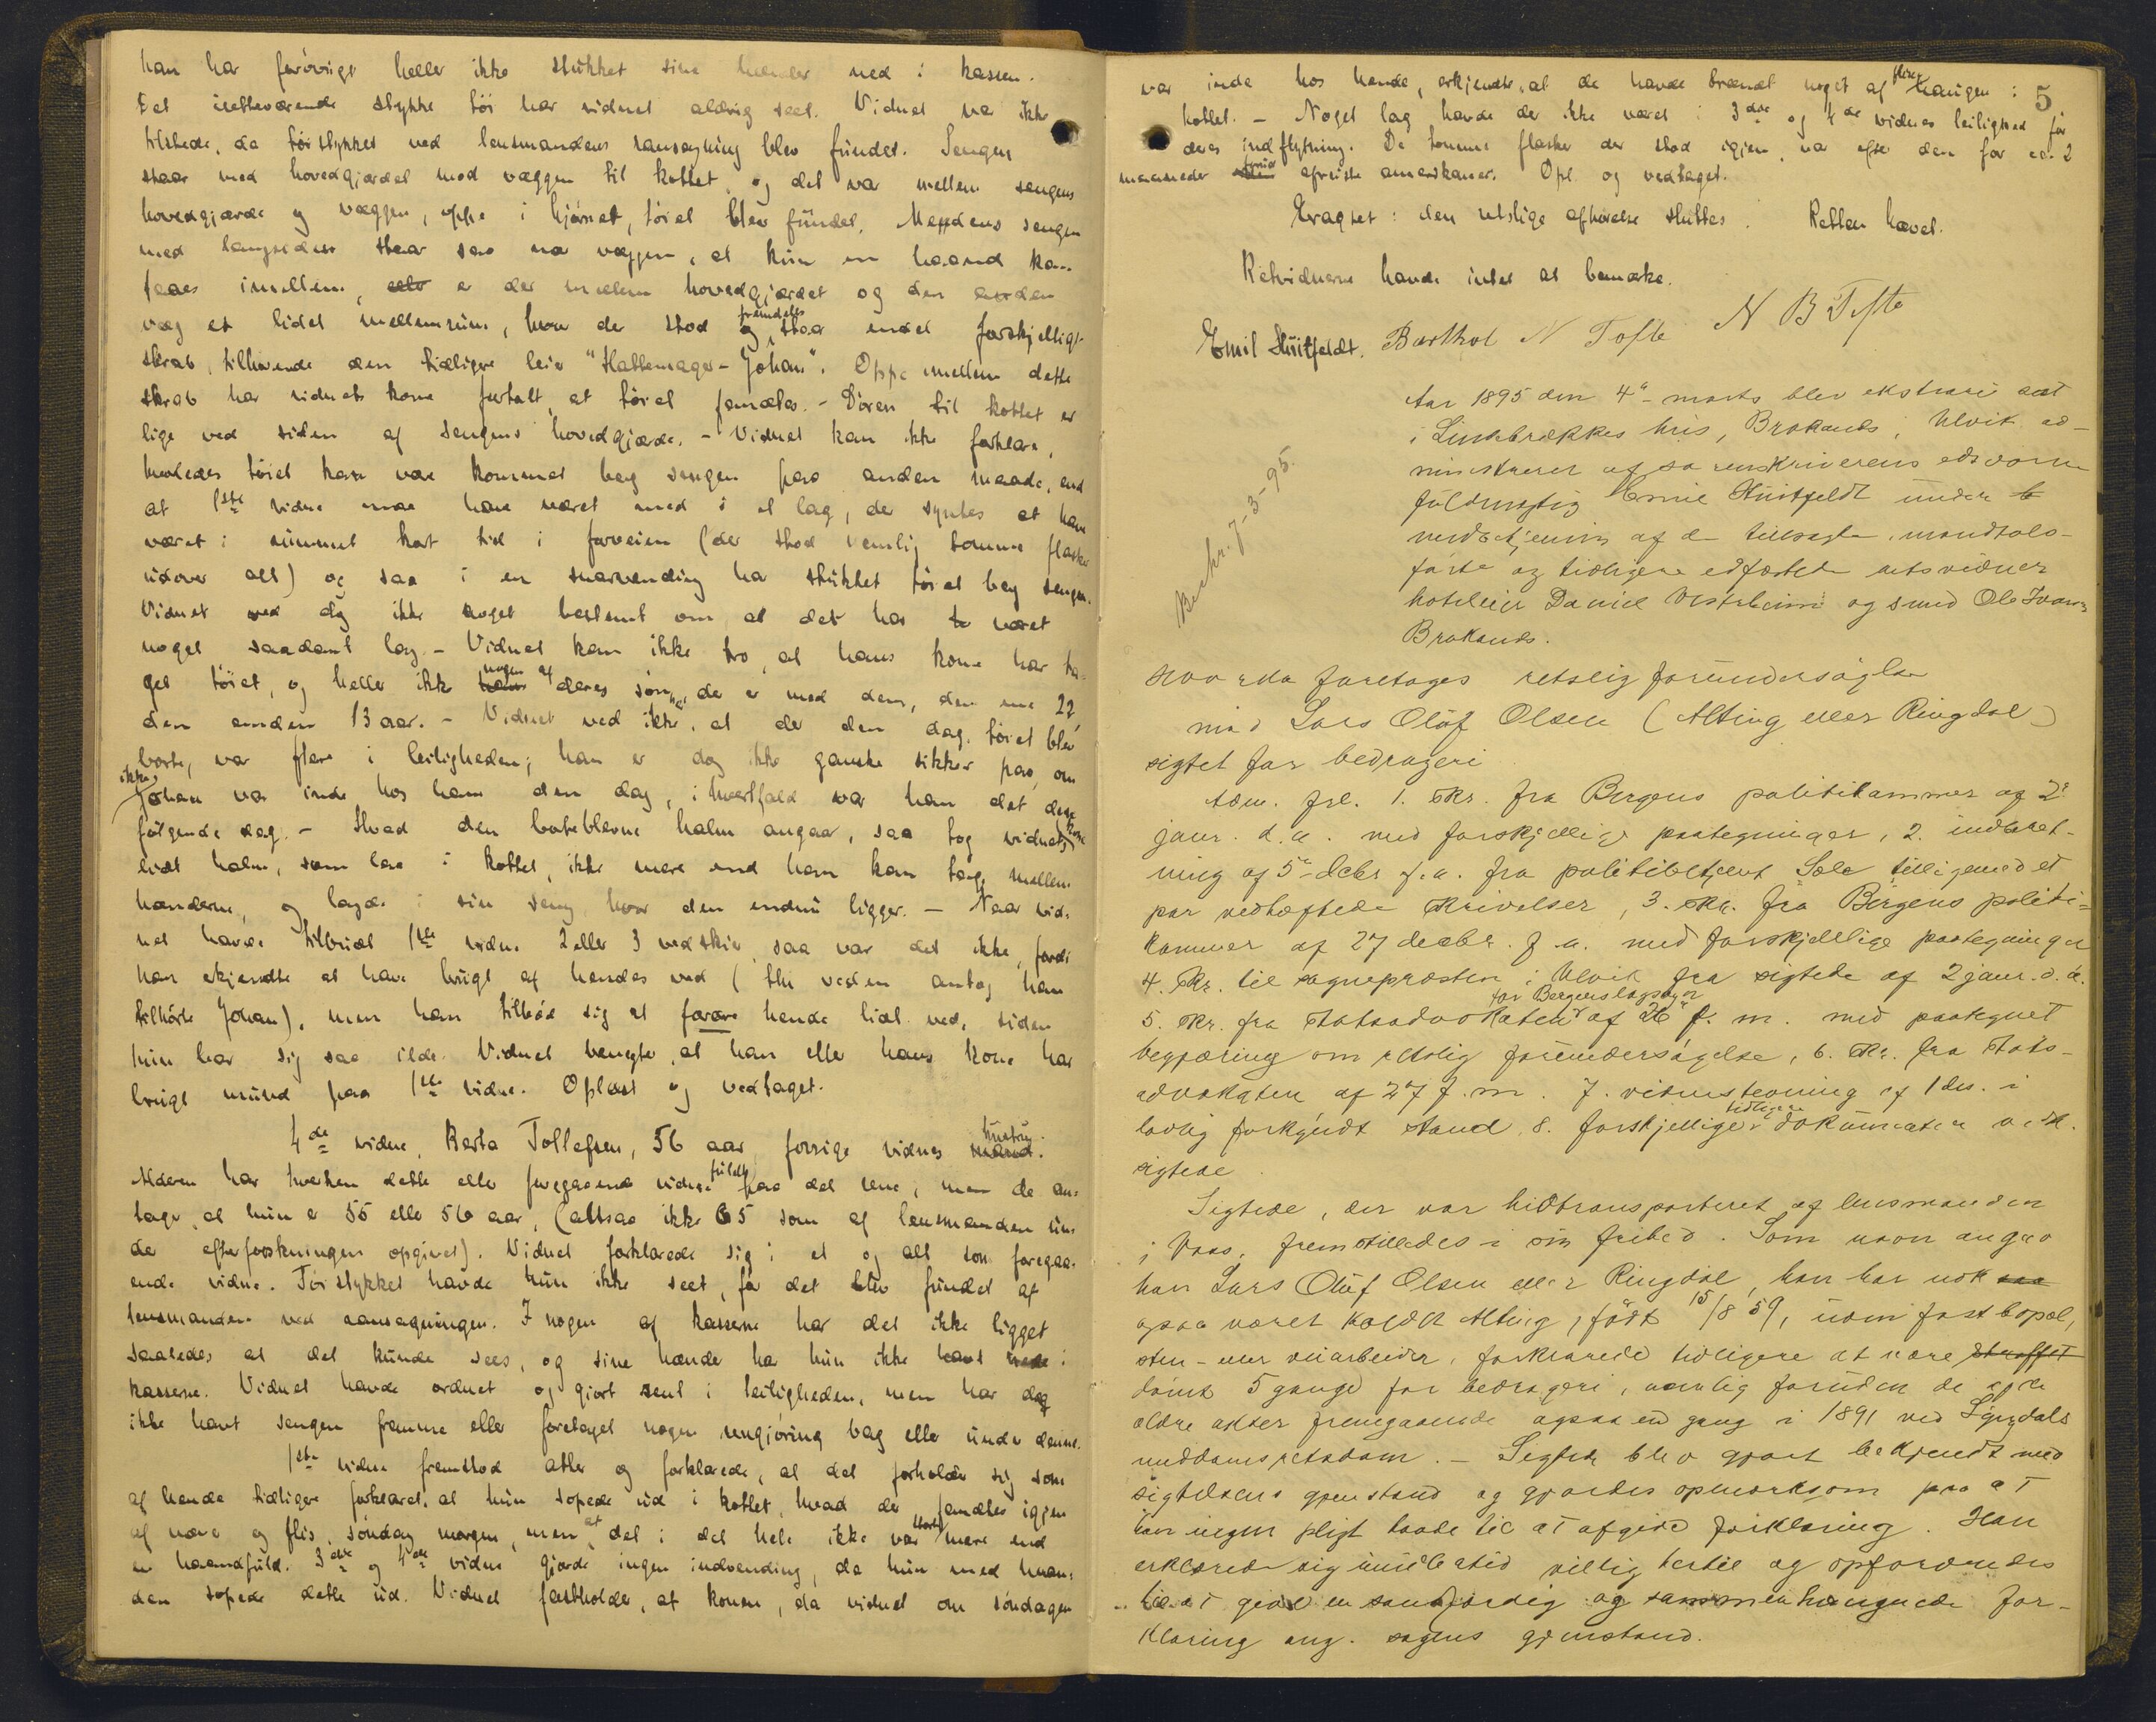 han har forövrigt heller ikke stukket sine hænder ned i kassen.
Det irettevärende stykke töi har vidnet aldrig seet. Vidnet var ikke
tilstede, da töistykket ved lensmandens ransagning blev fundet. Sengen
staar med hovedgjærdet mod væggen til kottet, og det var mellem sengens
hovedgjærde og væggen, oppe i hjörnet, töiet blev fundet. Medens sengen
med langsiden staar saa nær væggen, at kun en haand kan
faaes imellem, er der mellem hovedgjærdet og den anden
væg et lidet mellemrum, hvor der stod og fremdeles staar endel forskjelligt
skrab, tilhörende den tidligere leier "Hattemager-Johan". Oppe imellem dette
skrab har vidnets kone fortalt, at töiet fandtes. - Dören til kottet er
lige ved siden af sengens hovedgjærde. - Vidnet kan ikke forklare,
hvorledes töiet kan være kommet bag sengen paa anden maade, end
at 1ste vidne maa have været med i et lag, der syntes at have
været i rummet kort tid i forveien (der stod nemlig tomme flasker
udover alt) og saa i en snarvending har stukket töiet bag sengen.
Vidnet ved dog ikke noget bestemt om, at det har været
noget saadant lag. - Vidnet kan ikke tro, at hans kone har ta-
get töiet, og heller ikke nogen af deres sönner, der er med dem, den ene 22,
den anden 13 aar. - Vidnet ved ikke, at der den dag, töiet blev
borte, var flere i leiligheden; han er dog ikke ganske sikker paa, om
ikke Johan var inde hos ham den dag, i hvertfald var han det den
fölgende dag. - Hvad den bortblevne halm angaar, saa tog vidnets kone
lidt halm, som laa i kottet, ikke mere end han kan tage mellem
hænderne, og lagde i sin seng, hvor den endnu ligger. - Naar vid-
net havde tilbudt 1ste vidne 2 eller 3 vedskier, saa var det ikke, fordi
han erkjendte at have brugt af hendes ved (thi veden antog han
tilhörte Johan), men han tilböd sig at forære hende lidt ved, siden
hun bar sig saa ilde. Vidnet benegter, at han eller hans kone har
brugt mund paa 1ste vidne. Oplæst og vedtaget.
4de vidne, Berta Tollefsen, 56 aar, forrige vidnes hustru mand.
Alderen har hverken dette eller foregaaende vidne fuldt paa det rene, men de an-
tager, at hun er 55 eller 56 aar, (altsaa ikke 65 som af lensmanden un-
der efterforskningen opgivet). Vidnet forklarede sig i et og alt som foregaa-
ende vidne. Töistykket havde hun ikke seet, för det blev fundet af
lensmanden ved ransagningen. I nogen af kasserne har det ikke ligget
saaledes at det kunde sees, og sine hænder har hun ikke havt nede i
kasserne. Vidnet havde ordnet og gjort rent i leiligheden, men har dog
ikke havt sengen fremme eller foretaget nogen rengjöring bag eller under denne.
1ste vidne fremstod atter og forklarede, at det forholder sig som
af hende tidligere forklaret, at hun sopede ud i kottet, hvad der fandtes igjen
af næver og flis, söndag morgen, men at det i det hele ikke var stort mere end
en haandfuld. 3die og 4de vidne gjorde ingen indvending, da hun med haan-
den sopede dette ud. Vidnet fastholder, at konen, da vidnet om söndagen
5
var inde hos hende, erkjendte, at de havde brændt noget af flisen i
kottet. - Noget lag havde der ikke været i 3die og 4de vidnes leilighed för
deres indflytning. De tomme flasker der stod igjen var efter den for ca. 2
maaneder siden afreiste amerikaner. Opl. og vedtaget.
Eragtet: den retslige afhörelse sluttes. Retten hævet.
Retsvidnerne havde intet at bemærke.
Emil Huitfeldt. Barthol N Tofte N B Tofte
Aar 1895 den 4de marts blev ekstraret sat
i Brakanäs, Ulvik ad-
ministreret af sorenskriverens edsvorne
fuldmegtig Emil Huitfeldt under
medbetjening af de tilsagte, mandtals-
förte og tidligere edfæstede retsvidner
hoteleier Daniel Vestrheim og smed Ole Ivars
Brakanäs.
Beskr. 7-3-95.
Hvorda foretoges retslig forundersögelse
mod Lars Oluf Olsen (Alting eller Ringdal)
sigtet for bedrageri
Adm. frl. 1. skr. fra Bergens politikammer af 2.
janr. d.a. med forskjellige paategninger, 2. indberet-
ning af 5te debr. f.a. fra politibetjent Sole tilligemed et
par vedhæftede skrivelser, 3. skr. fra Bergens politi-
kammer af 27 decbr. f.a. med forskjellige paategninger
4. skr. til sogneprästen i Ulvik fra sigtede af 2 janr. d.a.
5. skr. fra statsadvokaten for Bergens lagsogn af 26 f.m. med paategnet
begjæring om retslig forundersögelse, 6. skr. fra stats-
advokaten af 27 f.m. 7. vidnestevning af 1 ds. i
lovlig forkyndt stand, 8. forskjellige tidligere dokumenter vedk.
sigtede.
Sigtede, der var hidtransporteret af lensmanden
i Voss, fremstilledes i sin frihed. Som navn angav
han Lars Oluf Olsen eller Ringdal, han har nok
ogsaa været kaldt Alting, födt 15/8 59, uden fast bopæl,
sten- eller veiarbeider, forklarede tidligere at være straffet
dömt 5 gange for bedrageri, nemlig foruden de af de
ældre akter fremgaaende ogsaa en gang i 1891 ved
meddomsretsdom. - Sigtede blev gjort bekjendt med
sigtelsens gjenstand og gjordes opmerksom paa at
han ingen pligt havde til at afgive forklaring. Han
erklærede sig imidlertid villig hertil og opfordredes
til at give en sandfærdig og sammenhængende for-
klaring ang. sagens gjenstand.